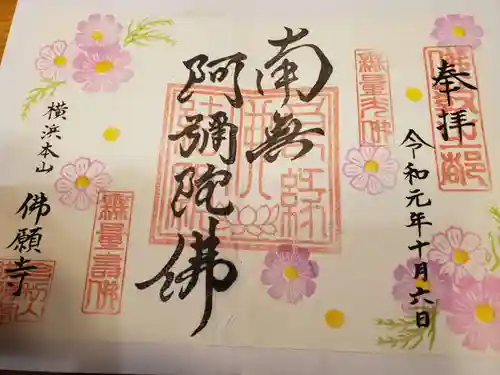 奉拝
令和元年十月六日
南無
阿彌陀佛
無量光佛
無量壽佛
横浜本山
佛願寺